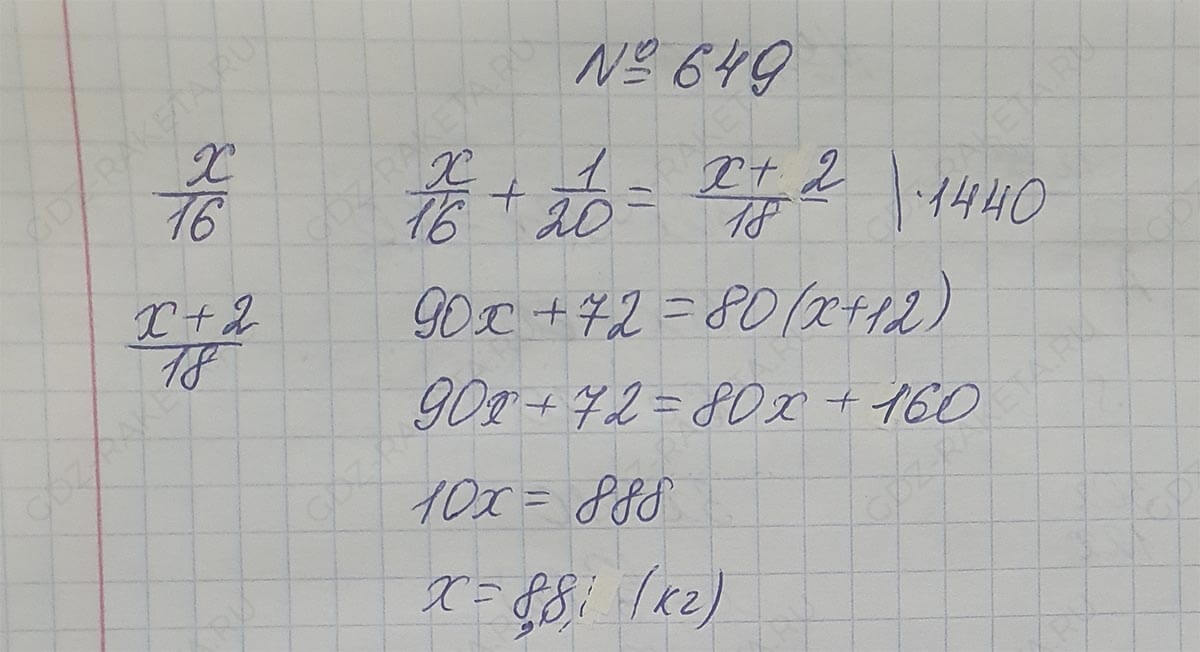 № 649
x/16    x/16 + 1/20 = x+2/18 | ·1440
x+2/18    90x + 72 = 80(x+12)
90x + 72 = 80x + 160
10x = 888
x = 8,8 (кг)
GDZ-RAKETA.RU